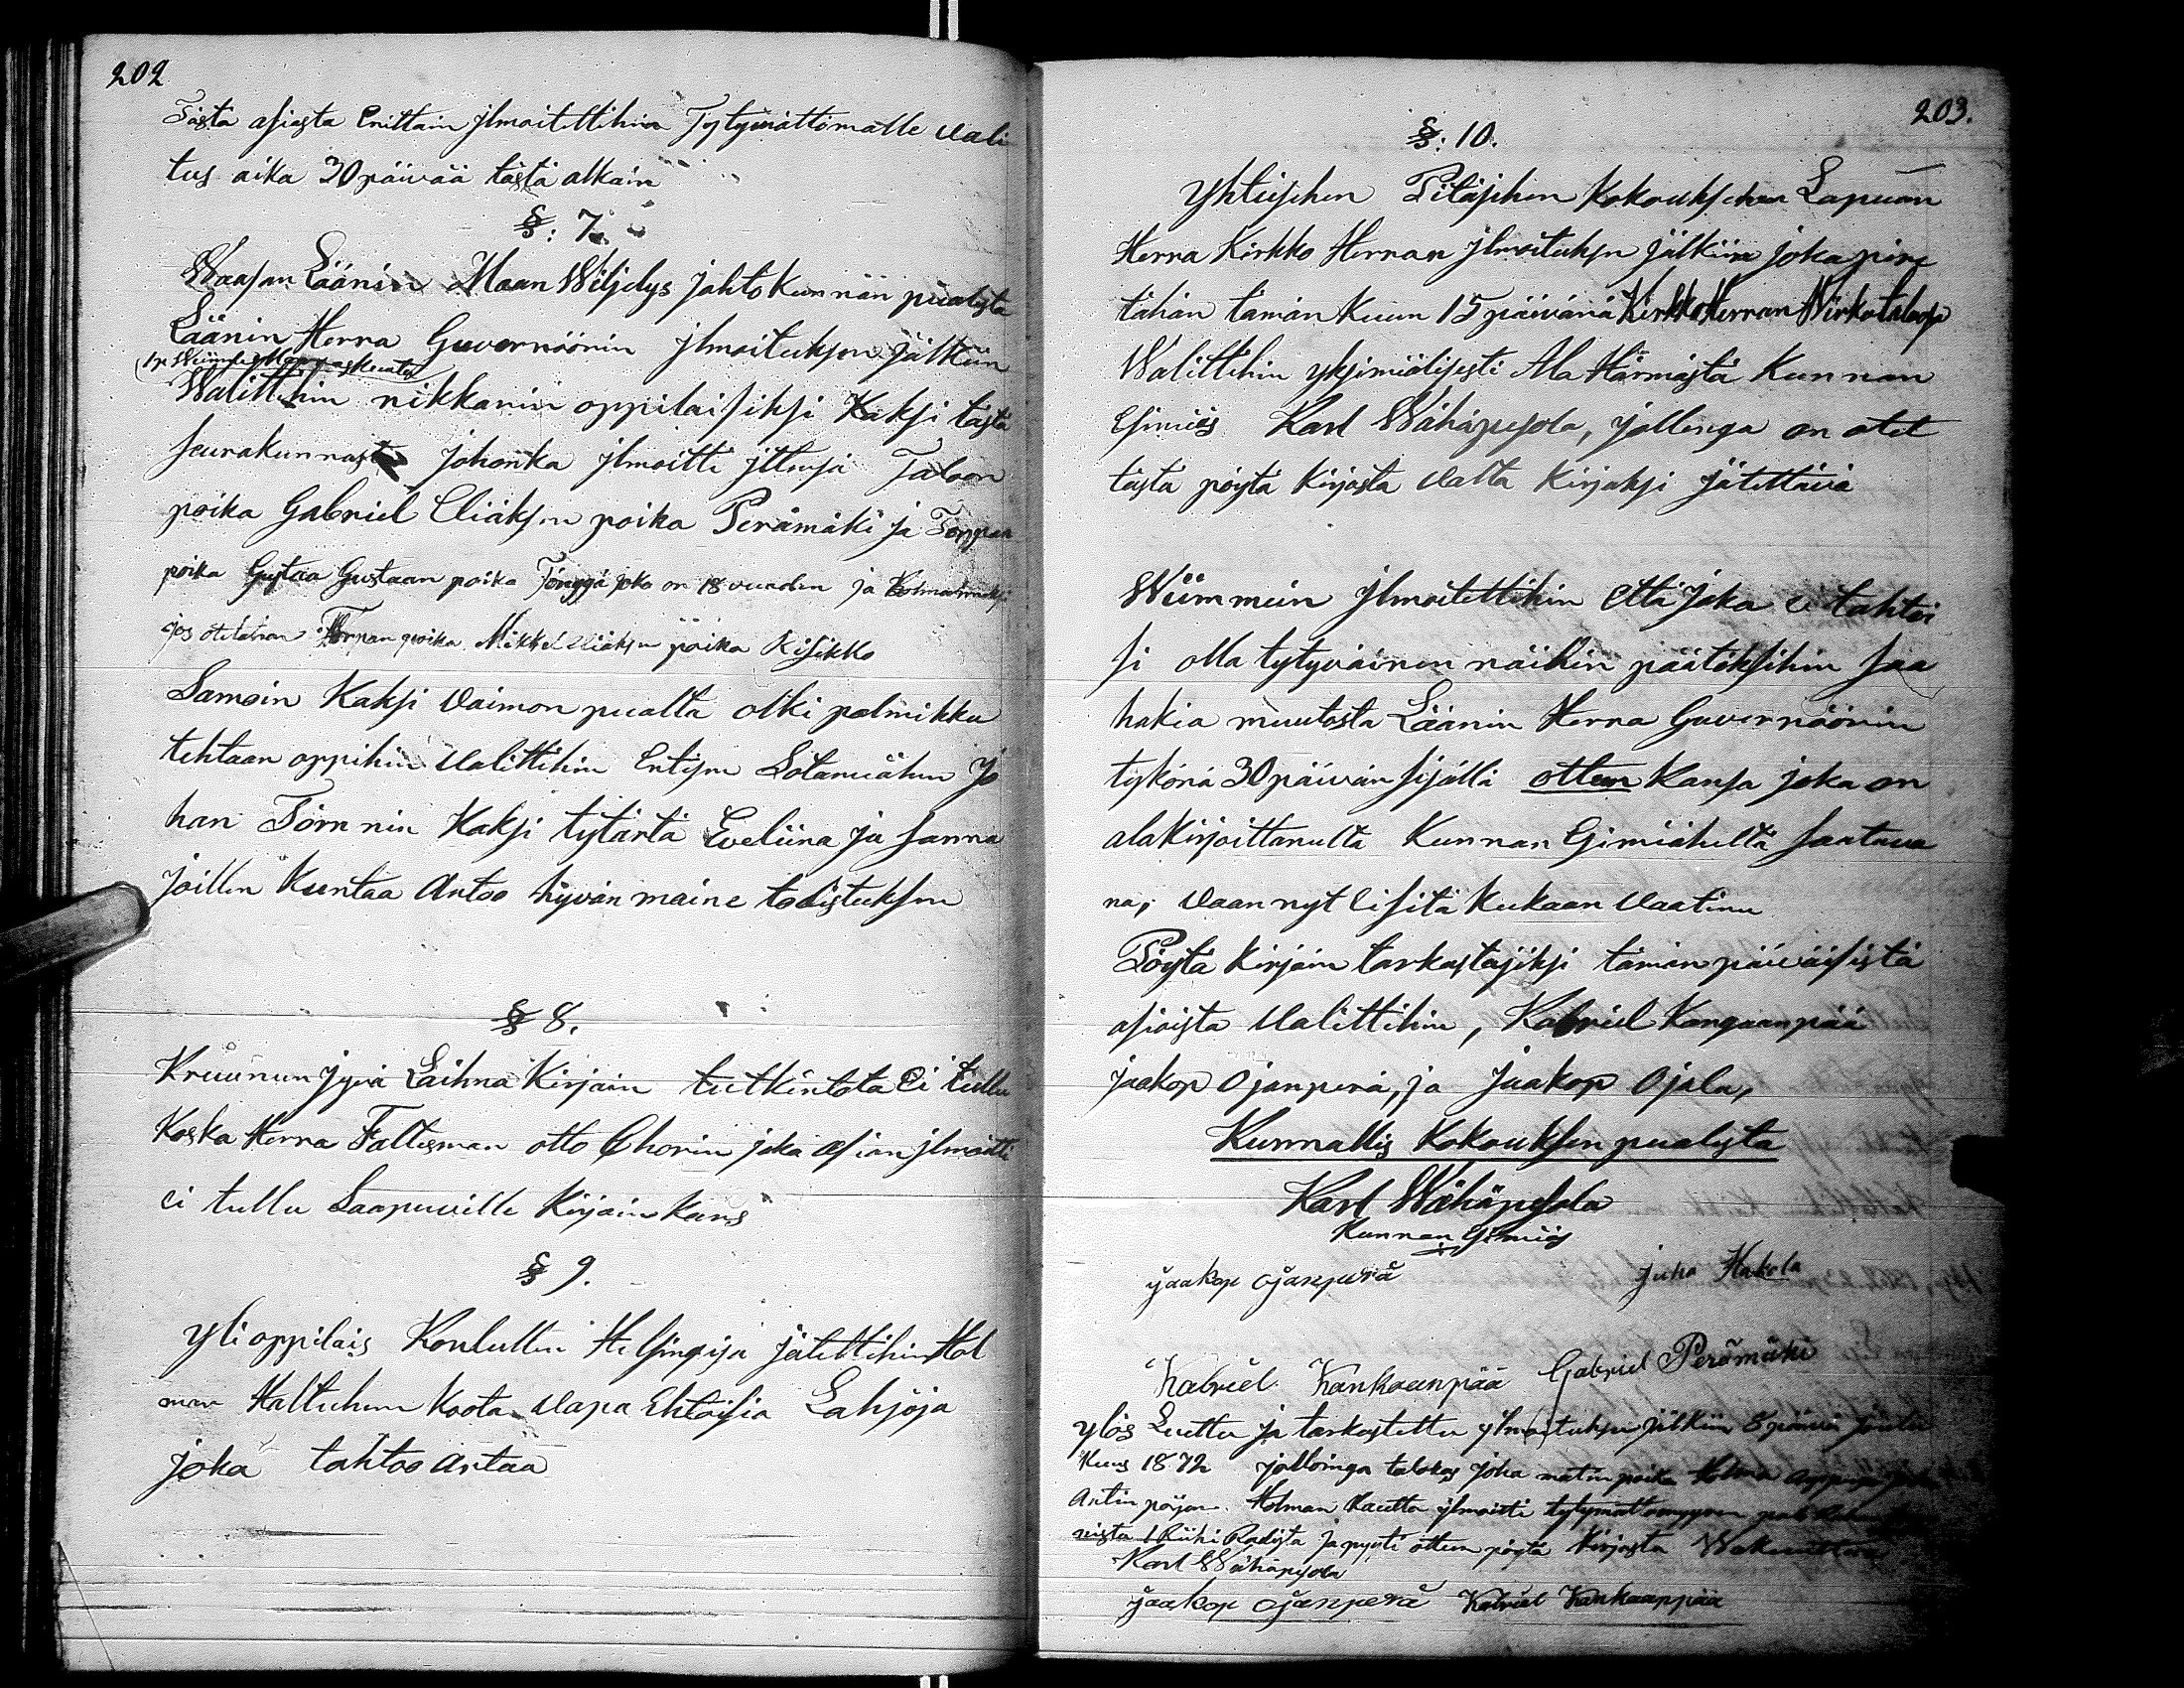 202
Tästa asiasta Erittain jlmoitettihin Tytymättömalle vali
tus aika 30 päivää tästä alkain
§: 7.
Waasan Läänin Maan Wiljelys johto kunnan puolesta
Läänin Herra Guvernöörin jlmoituksen jälkiin
Walittihin nikkarin oppilaisiksi Kaksi tästä
seurakunnasta johonka jlmoitti jttensä Taloon
poika Gabriel Eliaksen poika Perämäki ja Torppan
poika Gustaa Gustaan poika joka on 18 vuaden ja
jos otetahan Torpan poika Mikkel Eliaksen poika Kisikko
Samoin Kaksi Vaimon pualta olki palmikku
tehtaan oppihin valittihin Entisen Sotamiähen Jo
han Törnnin Kaksi tytärtä Eveliina ja Sanna
joillen Kuntaa Antoo hyvän maine todistuksen
§ 8.
Kruunun jyvä Laihna Kirjain tutkintota Ei tullu
Koska Herra Faltesman otto Chorin joka asian jlmoitti
ei tullu Saapuville Kirjain kans
§ 9.
Yli oppilais Koulullen Helsingisä jätettihin Hol
man Haltuhun koota vapa Ehtoisia Lahjoja
joka tahtoo antaa
203.
§: 10.
Yhteisehen Pitäjihen Kokouksehen Lapuan
Herra Kirkko Herran jlmoituksen jälkiin joka pire
tähän tämän kuun 15 päivänä Kirkko Herran Wirka talosa
Walittihin yksimiälisesti Ala Härmästä Kunnan
Esimiäs Karl Wähäpesola, jollenga on otet
tästä pöytä kirjasta valta kirjaksi jätettävä
Wiimmein jlmoitettihin Että joka ei tahtoi
si olla tytyväinen näihin päätöksihin saa
hakia muutosta Läänin Herra Guvernöörin
tykönä 30 päivän sisällä otteen Kansa joka on
alakirjoittanulta Kunnan Esimiäheltä saatava
na, vaan nyt ei sitä kukaan vaatinu
Pöytä kirjain tarkastajiksi tämän päiväisistä
asioista valittihin, Kabriel Kangaanpää
jaakop Ojanperä, ja Jaakop Ojala,
Kunnallis Kokouksen pualesta
Karl Wähäpesola
Kunnan Esimiäs
jaakop ojanperä
juha Hakola
Kabriel Kankaanpää Gabriel Perämäki
ylös Luettu ja tarkastettu ylmoituksen jälkiin 8 päivä joulu
Kuus 1872 jolloinga talokas Joha matin poika Holma
Antin pojan Holman kautta ylmoitti tytymättömyyren
Riihi Radista ja pyysi otteen pöytä kirjasta
Karl Wähäpesola
jaakop ojanperä Kabriel Kankaanpää